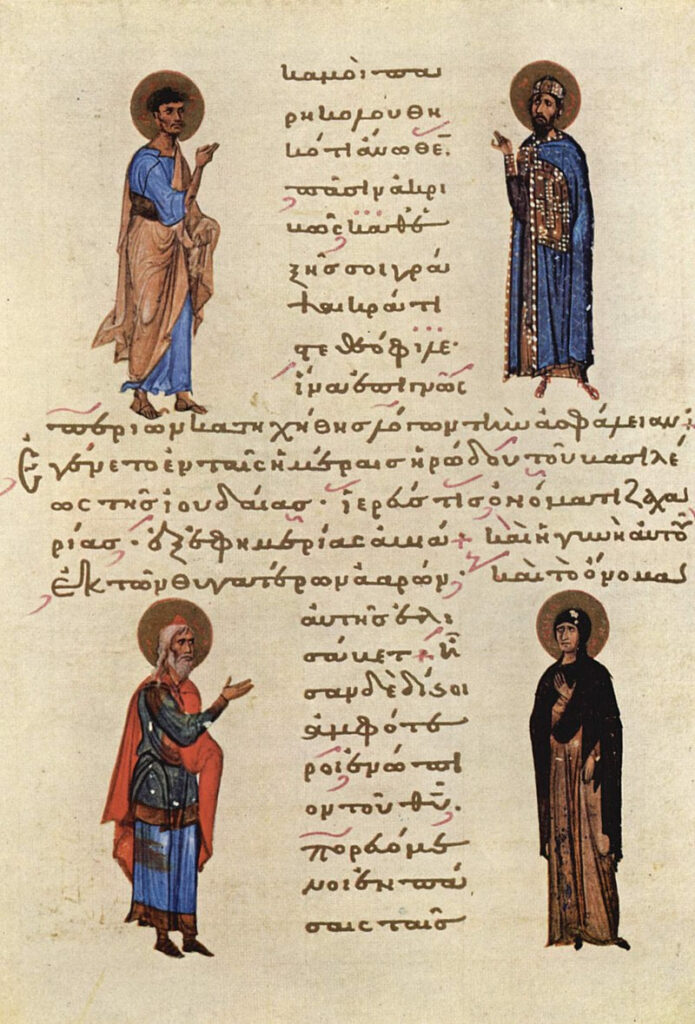 καμοὶ πα
ρηκολουθη
κότι ἄνωθε̄
πᾶσιν ἀκρι
βῶς καθε
ξῆς σοι γρά
ψαι κράτι
στε θεόφιλε·
ἵνα ἐπιγνῶς
περὶ ὧν κατηχήθης λόγων τὴν ἀσφάλειαν:
Ἐγένετο ἐν ταῖς ἡμέραις ἡρώδου τοῦ βασιλέ
ως τῆς ἰουδαίας· ἱερεύς τις ὀνόματι ζαχα
ρίας· ἐξ ἐφημερίας ἀβιά + καὶ ἡ γυνὴ αὐτοῦ
ἐκ τῶν θυγατέρων ἀαρών· καὶ τὸ ὄνομα
αὐτῆς ἐλι
σάβετ + ἦ
σαν δὲ δίϗοι
ἀμφότε
ροι ἐνώπι
ον τοῦ θῡ·
πορευόμε
νοι ἐν πά
σαις ταῖς